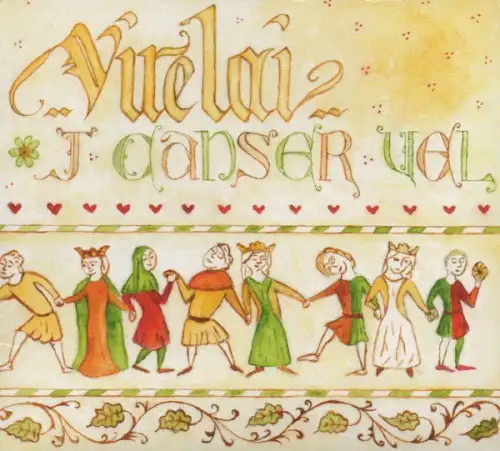 Virelai
J DANSER VEL